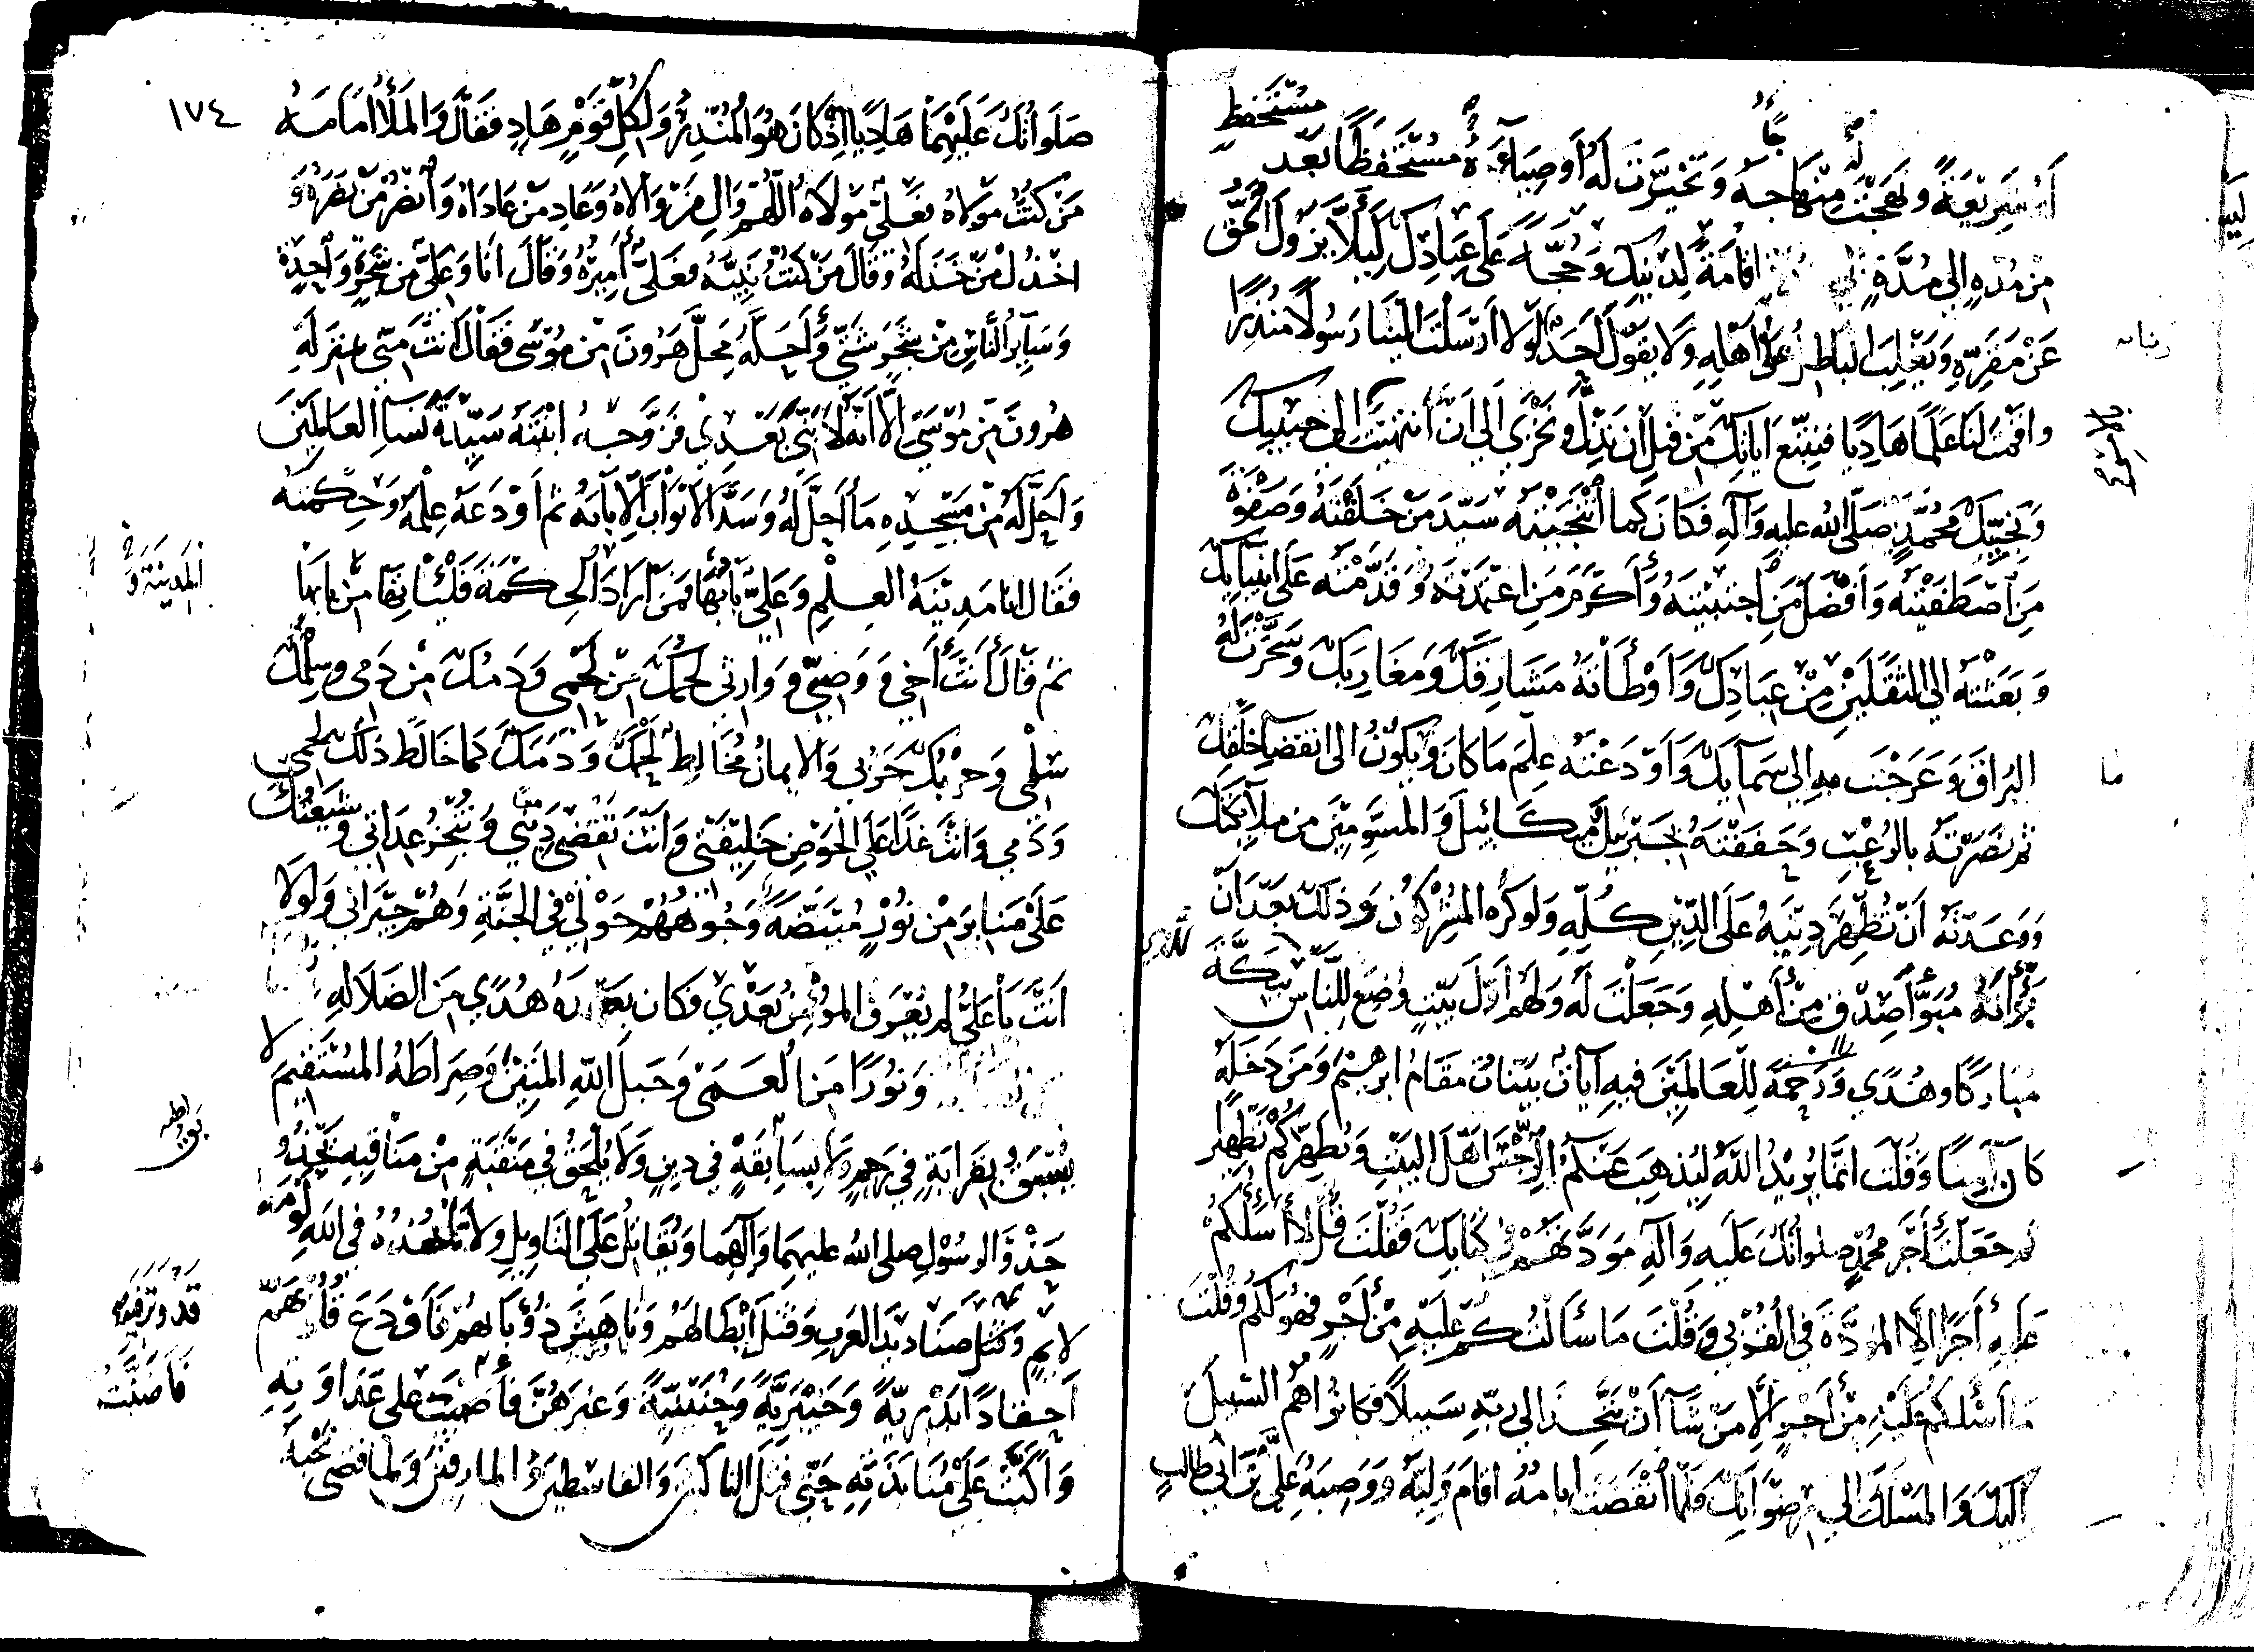 مستحفظ
لَهُ شَرِيعَةً ونَهَجْتَ مِنْهَاجه وَتَخَيَّرْتَ لَهُ أَوصِيَاءَهُ مُسْتَحْفِظًا بَعْد
مِنْ مُدةٍ إلي مُدَّةٍ اقامَةً لِدِينِكَ وَحُجَّةً عَلَى عِبَادِكَ لِئَلَّا يَزُولَ الحَقُّ
عَنْ مَقَرِّهِ وَيَغْلِبَ الباطِلُ عَلَى أهْلِهِ وَلَا يَقُولَ أَحَدٌ لَولَا أَرْسَلْتَ إلَيْنَا رَسُولًا مُنْذِرًا
واقمتَ لنَا عَلَمًا هَادِيًا فَنَتَّبِعَ آيَاتِكَ مِنْ قبلِ أن نَذِلَّ ونَخْزَى إلَى أنْ انْتَهَيْتَ إلى حبيبك
وَنَجِيبِكَ مُحَمَّدٍ صَلّى الله عليهِ وَآلهِ فَكَانَ كَما انْتَجَبْتَهُ سَيِّدَ مَنْ خَلَقْتَهُ وَصَفْوَةَ
مَنِ اصْطَفَيْتَهُ وَأَفْضَلَ مَنِ اجْتَبَيْتَهُ وَأَكْرَمَ مَنِ اعْتَمَدْتَهُ وَقَدَّمْتَه عَلَى انبيَائِكَ
وَبَعَثْتَهُ إلي الثَّقَلَيْنِ مِنْ عِبَادِكَ وَأَوْطَأْتَهُ مَشَارِقَكَ وَمَغَارِبَكَ وَسَخَّرْتَ لَهُ
البُرَاقَ وَعَرَجْتَ بِهِ إلي سَمَآئِكَ وَأَوْدَعْتَهُ عِلمَ مَا كانَ وَيكُونُ الى انْقِضَاءِ خَلْقِكَ
ثم نَصَرْتَهُ بالرُّعْبِ وَحَفَفْتَهُ بجَبْرَئِيلَ وميكائِيلَ وَالمُسَوِّمِينَ مِن ملآئكتك
وَوَعَدْتَهُ أنْ تُظْهِرَ دِينَهُ عَلَى الدِّينِ كُلِّهِ وَلَوكَرِهَ المشْرِكُونَ وَذلكَ بَعْدَ أَنْ
بَوَّأْتَهُ مُبَوَّأَ صِدْقٍ مِنْ أَهْلِهِ وَجَعَلْتَ لَهُ وَلَهُمْ أَوَّلَ بَيْتٍ وُضِعَ لِلنَّاسِ بِبَكَّةَ
مُبَارَكًا وهُدًى وَرَحْمَةً لِلْعَالَمِينَ فيهِ آيَاتٌ بَيِّنَاتٌ مَقَامُ ابرهيمَ وَمَنْ دَخَلَهُ
كَانَ آمِنًا وَقُلْتَ انَّمَا يُرِيدُ اللهُ لِيُذهِبَ عَنْكمُ الرِّجْسَ أهْلَ البَيْتِ وَيُطَهِّرَكُمْ تَطْهِيرا
ثم جَعَلْتَ أَجْرَ محمَّدٍ صلواتُكَ عَلَيهِ وَآلهِ مَوَدَّتَهُمْ في كتابِكَ فَقُلْتَ قُل لا أسْأَلكمْ
عَلَيهِ أَجْرًا إلَّا المَوَدَّةَ فِي القُرْبَى وَقُلْتَ مَا سَأَلتُكُمْ عَلَيْهِ مِنْ أَجْرٍ فهُوَ لَكُمْ وَقُلْتَ
مَا أسْئَلكُمْ عَلَيْهِ مِنْ أَجْرٍ إلَّا مَنْ شَآءَ أنْ يَتَّخِذَ إلى رَبِّهِ سَبِيلًا فكانوا هُم السَّبِيلَ
اليكَ وَالمَسْلَكَ إلي رِضْوَانِكَ فَلَمَّا انْقَضَت ايامُهُ اقامَ وَلِيَّهُ ووَصِيَّهُ عَلِيَّ بْنَ أبِي طالبٍ
١٧٤
صَلَوَاتُكَ عَلَيْهِمَا هَادِيًا إِذْ كَانَ هُوَ المُنْذِرَ وَلِكُلِّ قَوْمٍ هَادٍ فَقَالَ وَالمَلَأُ أَمَامَهُ
مَنْ كُنْتُ مَوْلَاهُ فعَلِيٌّ مَوْلَاهُ اللّهُمَّ وَالِ مَنْ وَالاهُ وَعَادِ مَنْ عَادَاهُ وَانْصُرْ مَنْ نَصَرَهُ وَ
اخْذُلْ مَنْ خَذَلَهُ وَقَالَ مَنْ كُنْتُ نَبِيَّهُ فعَلِيٌّ أَمِيرُهُ وَقَالَ أنَا وَعَلِيٌّ مِنْ شَجَرَةٍ وَاحِدَةٍ
وَسَائِرُ النَّاسِ مِنْ شَجَرٍ شَتَّى وَأَحَلَّهُ مَحَلَّ هَرُونَ مِنْ مُوْسَى فَقَالَ أنْتَ مِنِّي بِمَنْزِلَةِ
هرُونَ مِنْ مُوْسَى إلَّا أنَّهُ لَا نَبِيَّ بَعْدِي فَزَوَّجَهُ ابْنَتَهُ سَيِّدَةَ نِسَاءِ العَالَمِينَ
وَأَحَلَّ لَهُ مِنْ مَسْجِدِهِ مَا أَحَلَّ لَهُ وَسَدَّ الأبْوَابَ إلّا بَابَهُ ثمَّ أَوْدَعَهُ عِلْمَهُ وَحِكْمَتَهُ
فقَالَ انا مَدِيْنَةُ العِلْمِ وَعَلِيٌّ بَابُهَا فَمَنْ أرَادَ الحِكْمَةَ فَلْيَأتِهَا مِنْ بَابِهَا
المَدِينَةَ وَ
ثمَّ قَالَ أنْتَ أَخِي وَوَصِيِّي وَوَارِثِي لَحْمُكَ مِنْ لَحْمِي وَدَمُكَ مِنْ دَمِي وسِلْمُكَ
سِلْمِي وَحَرْبُكَ حَرْبِي وَالإيمَانُ مُخَالِطٌ لَحْمَكَ وَدَمَكَ كَمَا خَالَطَ ذلكَ لحمي
وَدَمِي وَانْتَ غَدًا عَلَي الحَوْضِ خَلِيْفَتِي وَأَنْتَ تَقْضِي دَيْنِي وَتُنْجِزُ عِدَاتِي وَشِيعَتُكَ
عَلَى مَنَابِرَ مِنْ نُوْرٍ مُبْيَضَّةً وُجُوهُهُمْ حَوْلِي فِي الجَنَّةِ وَهُمْ جِيْرَانِي وَلَولَا
أنْتَ يَا عَلِيُّ لم يُعْرَفِ المُؤْمِنُ بَعْدِي فكَانَ بَعْدَهُ هُدًى مِنَ الضَلَالَةِ
وَنُوْرًا مِنَ العَمَى وَحَبلَ اللهِ المَتِينَ وَصِرَاطَهُ المُسْتَقِيمَ لا
يُسْبَقُ بِقَرَابَةٍ فِي رَحِمٍ وَلا بِسَابِقَةٍ فِي دِينٍ وَلَا يُلْحَقُ فِي مَنْقَبَةٍ مِنْ مَنَاقِبِهِ يَحْذُو
حَذْوَ الرسُوْلِ صلى الله عليهِمَا وَآلِهِمَا وَيُقَاتِلُ عَلَى التَأوِيلِ وَلَا تَأْخُذُهُ في اللهِ لَوْمَةُ
لائمٍ وَقتلَ صَنَادِيدَ العَرَبِ وَقَتَلَ أبْطَالَهُم وَنَاهَشَ ذُؤْبَانَهُمْ فَأَوْدَعَ قُلُوبَهُمْ
أَحْقَادًا بَدْرِيَّةً وَخَيْبَرِيَّةً وَحُنَيْنِيَّةً وَغيْرَهُنَّ فأَضَبَّتْ عَلى عَدَاوَتِهِ
فَأَضَبَّتْ
وَأَكَبَّتْ عَلَى مُنَابَذَتِهِ حَتّى قَتلَ الناكثينَ وَالقاسِطِينَ وَالمارقينَ وَلَما قَضى نَحْبَهُ